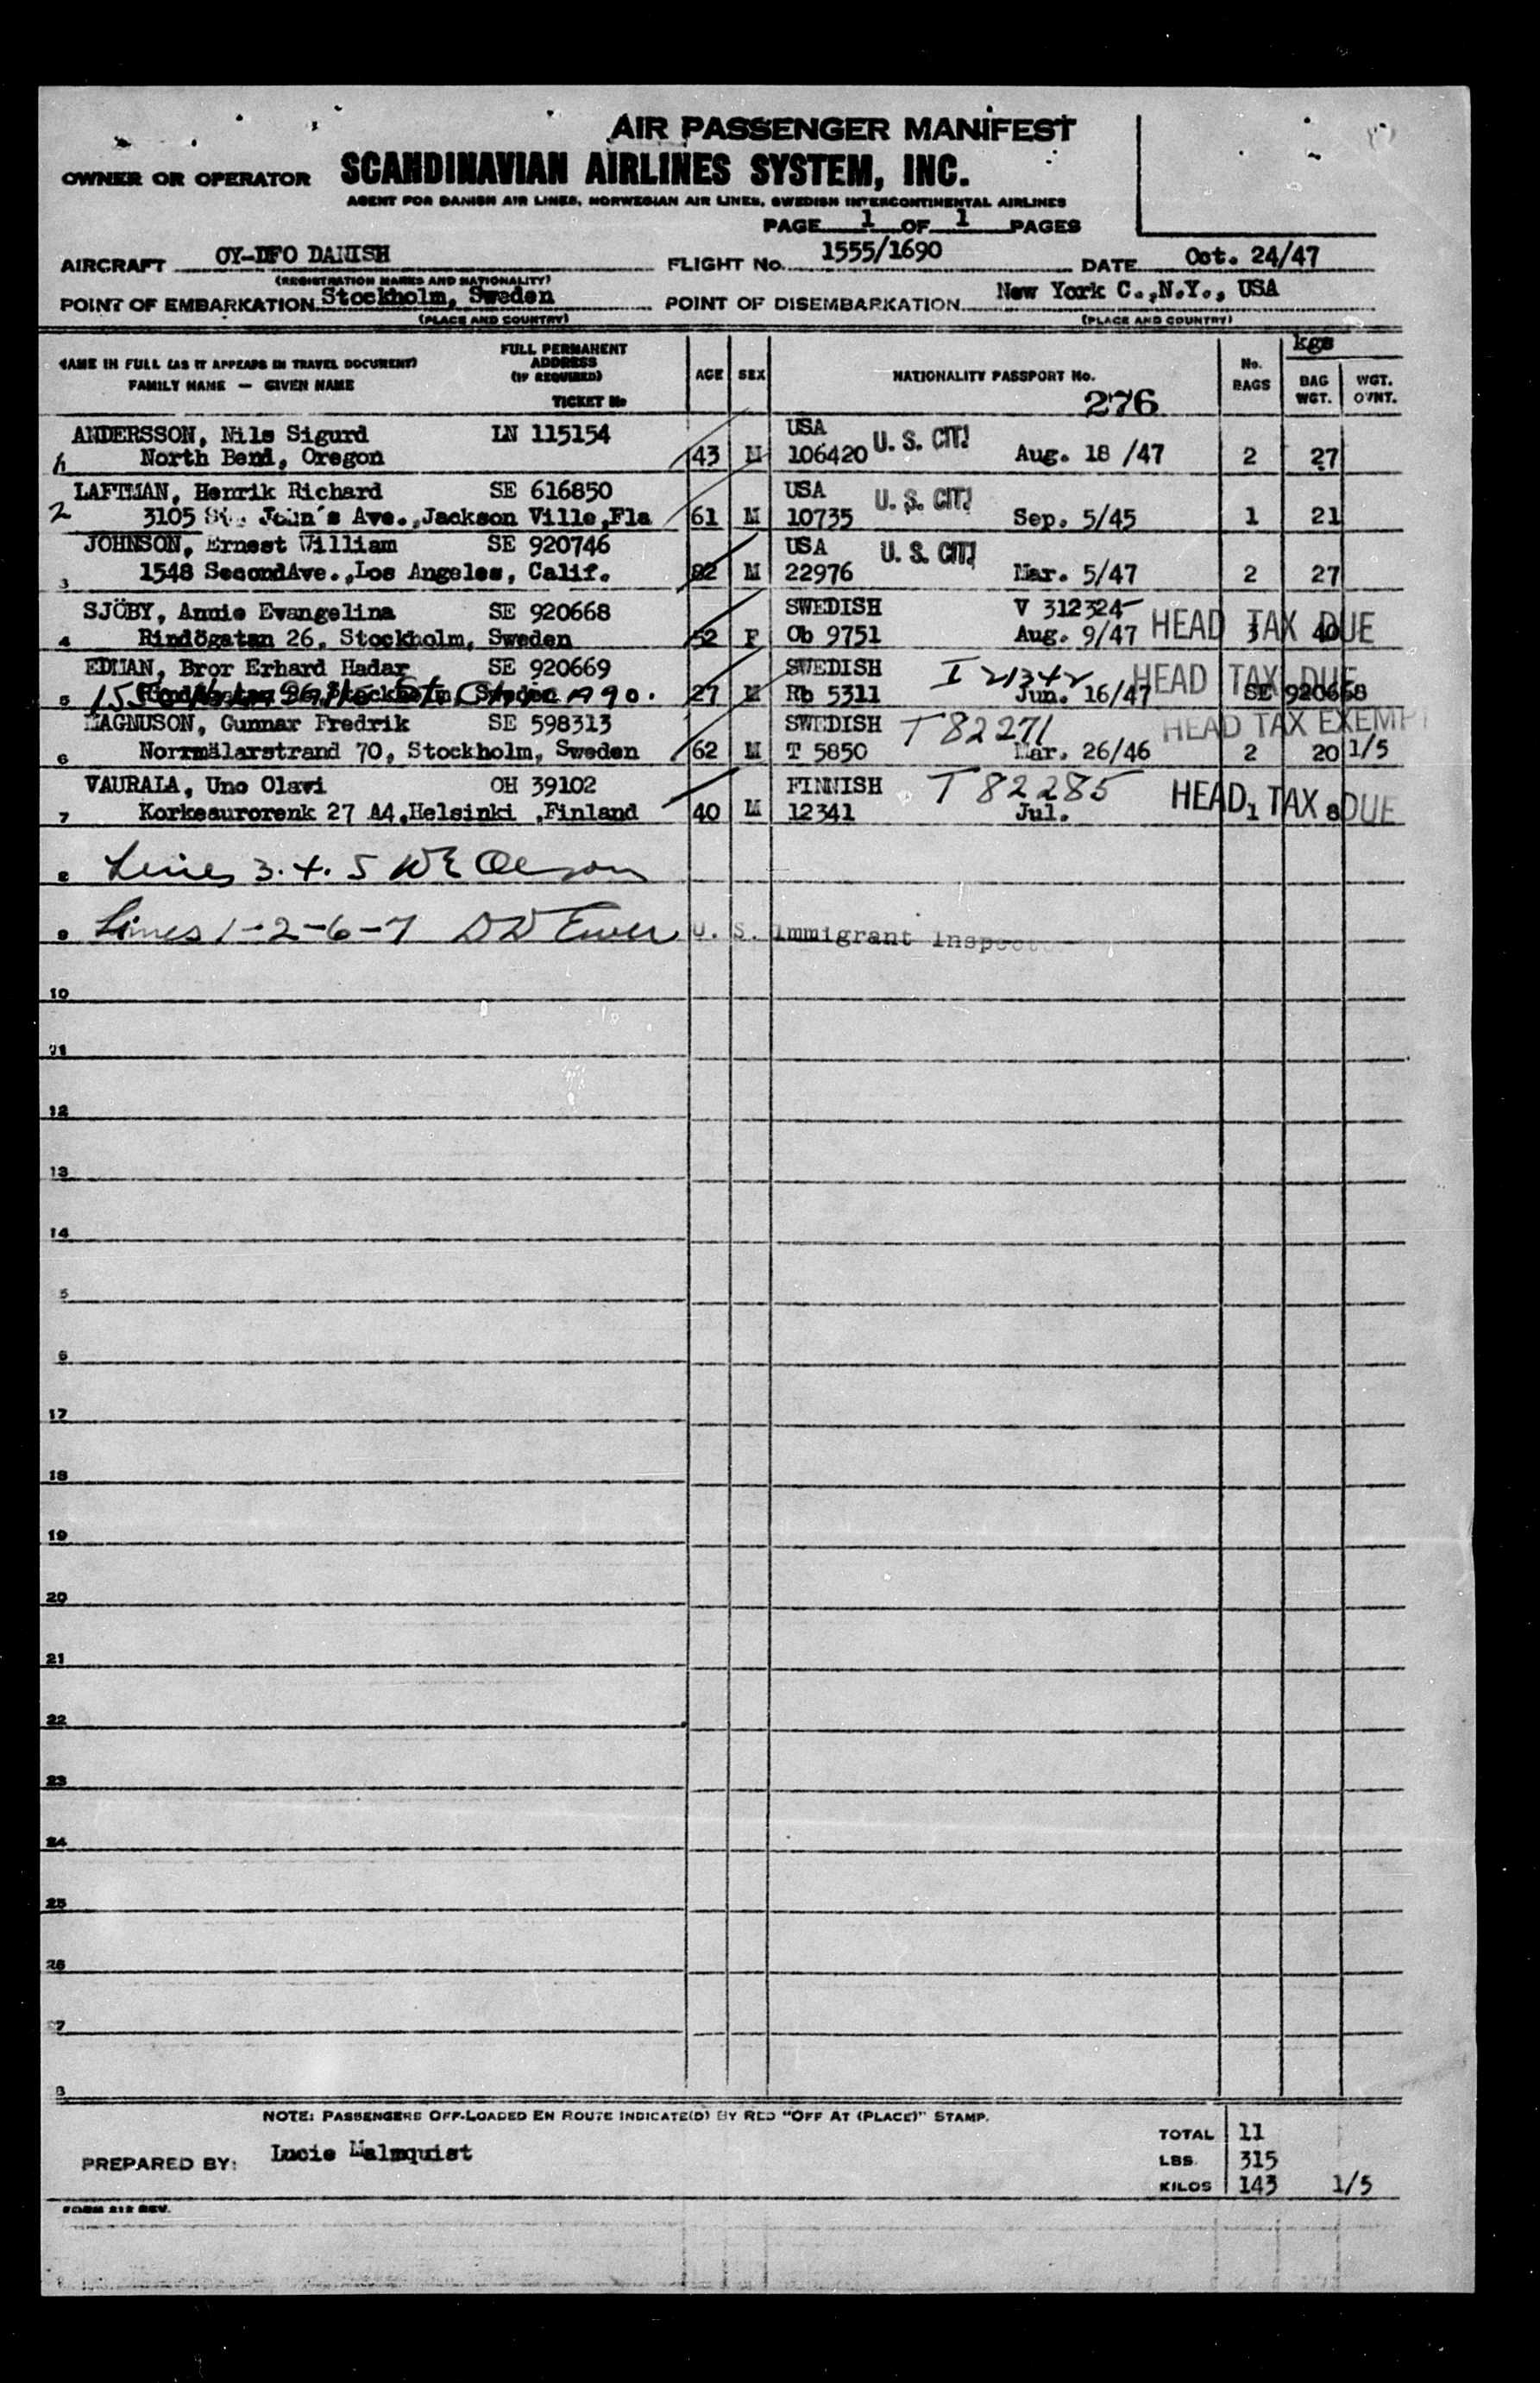 AIR PASSENGER MANIFEST
OWNER OR OPERATOR SCANDINAVIAN AIRLINES SYSTEM, INC.
AGENT FOR DANISH AIR LINES, NORWEGIAN AIR LINES, SWEDISH INTERCONTINENTAL AIRLINES
PAGE 1 OF 1 PAGES
AIRCRAFT OY-DFO DANISH FLIGHT No. 1555/1690 DATE Oct. 24/47
(REGISTRATION MARKS AND NATIONALITY)
POINT OF EMBARKATION Stockholm, Sweden POINT OF DISEMBARKATION New York C.,N.Y., USA
(PLACE AND COUNTRY) (PLACE AND COUNTRY)
NAME IN FULL (AS IT APPEARS IN TRAVEL DOCUMENT) FULL PERMANENT ADDRESS (IF REQUIRED) AGE SEX NATIONALITY PASSPORT No. No. BAGS kgs BAG WGT. WGT. OVNT.
FAMILY NAME — GIVEN NAME TICKET No 276
ANDERSSON, Nils Sigurd LN 115154 USA U. S. CIT.
North Bend, Oregon 43 M 106420 Aug. 18 /47 2 27
LAFTMAN, Henrik Richard SE 616850 USA U. S. CIT.
2 3105 St. John's Ave.,Jackson Ville,Fla 61 M 10735 Sep. 5/45 1 21
JOHNSON, Ernest William SE 920746 USA U. S. CIT.
3 1548 SecondAve.,Los Angeles, Calif. 82 M 22976 Mar. 5/47 2 27
SJÖBY, Annie Evangelina SE 920668 SWEDISH V 312324
4 Rindögatan 26, Stockholm, Sweden 52 F Ob 9751 Aug. 9/47 3 40 HEAD TAX DUE
EDMAN, Bror Erhard Hadar SE 920669 SWEDISH I 21342 HEAD TAX DUE
5 27 M Rb 5311 Jun. 16/47 SE 920668
MAGNUSON, Gunnar Fredrik SE 598313 SWEDISH T 82271 HEAD TAX EXEMPT
6 Norrmälarstrand 70, Stockholm, Sweden 62 M T 5850 Mar. 26/46 2 20 1/5
VAURALA, Uno Olavi OH 39102 FINNISH T 82285 HEAD TAX DUE
7 Korkeaurorenk 27 A4,Helsinki ,Finland 40 M 12341 Jul. 1 8
8 Lines 3. 4. 5 WE Olson
9 Lines 1-2-6-7 U. S. Immigrant Inspector
10
11
12
13
14
5
6
17
18
19
20
21
22
23
24
25
26
27
8
NOTE: PASSENGERS OFF-LOADED EN ROUTE INDICATE(D) BY RED "OFF AT (PLACE)" STAMP.
TOTAL 11
PREPARED BY: Lucie Malmquist LBS. 315
KILOS 143 1/5
FORM 212 REV.